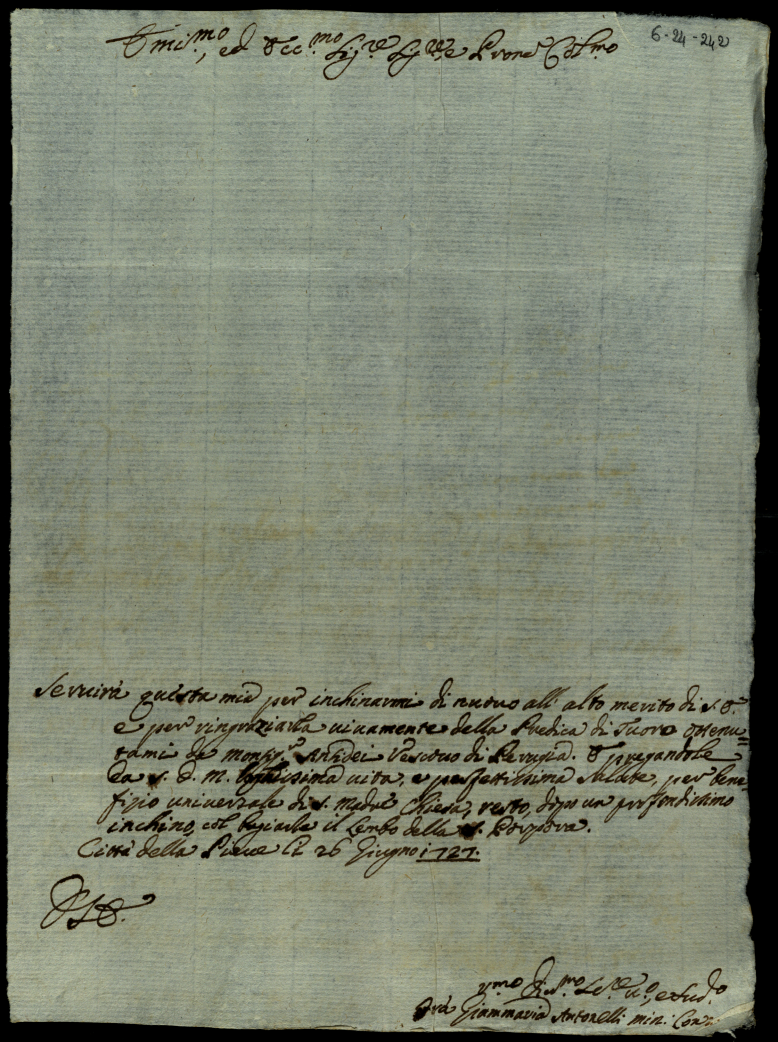 6-24-242
Emi.mo, ed Ecc.mo Sig.re Sig.re, e Prone Col.mo
Servirà questa mia per inchinarmi di nuovo all' alto merito di V. E.
e per ringraziarla vivamente della Predica di Tuoro ottenu=
tami da Monsig.r Antidei Vescovo di Perugia. E pregandole
da S. D. M. vita, e perfettissima salute, per bene=
fizio universale di S. Madre Chiesa, resto, dopo un profondissimo
inchino, col baciarle il Lembo della S. Porpora.
Città della Pieve li 26 Giugno 1727.
V.mo Di.mo Se.re v.o, e Sud.o
Frà Giammaria Antonelli Min: Con: